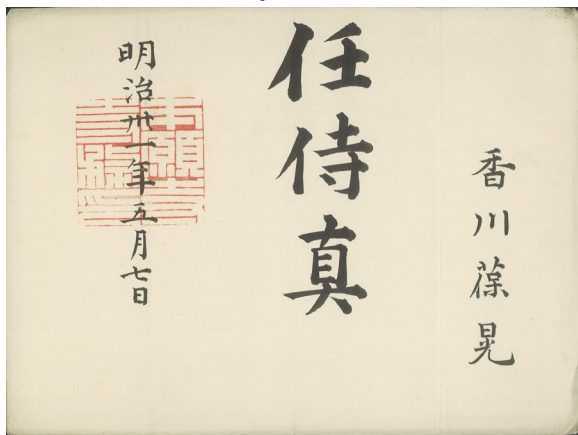 香川葆晃
任侍真
明治卅一年五月七日